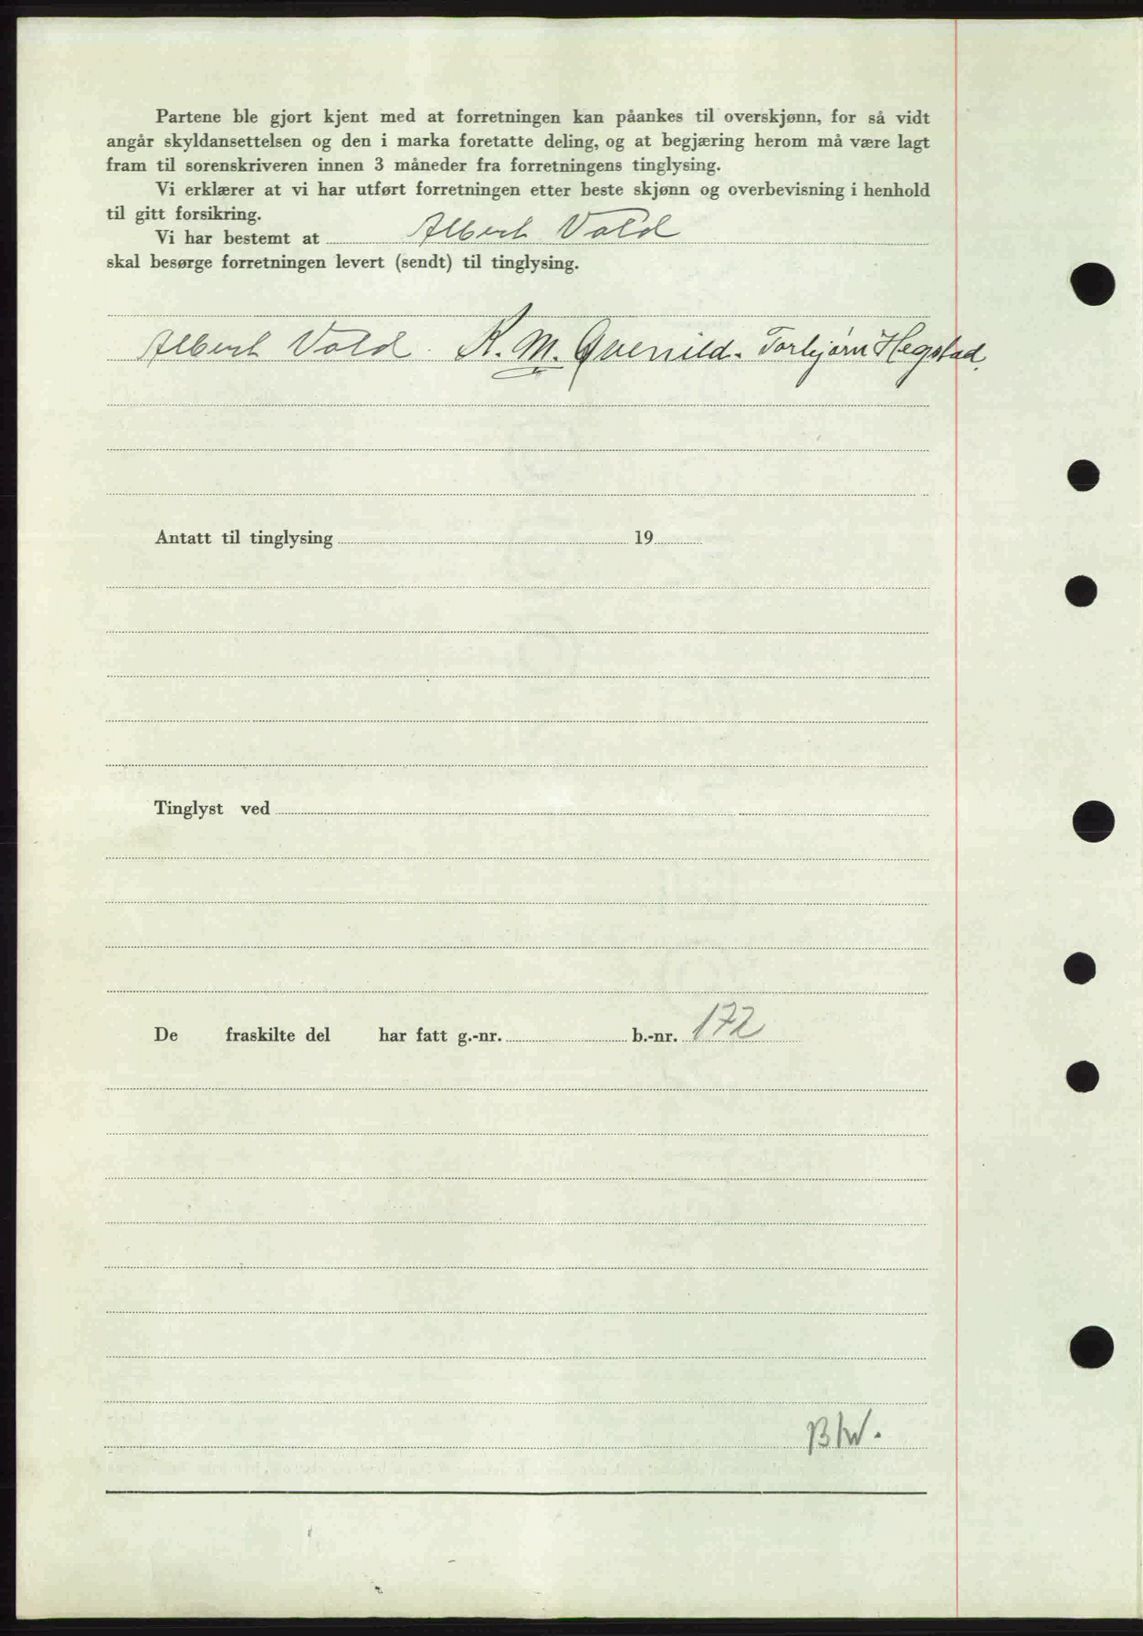 Partene ble gjort kjent med at forretningen kan påankes til overskjønn, for så vidt
angår skyldansettelsen og den i marka foretatte deling, og at begjæring herom må være lagt
fram til sorenskriveren innen 3 måneder fra forretningens tinglysing.
Vi erklærer at vi har utført forretningen etter beste skjønn og overbevisning i henhold
til gitt forsikring.
Vi har bestemt at Albert Vold
skal besørge forretningen levert (sendt) til tinglysing.
Albert Vold. K. M. Qvenild. Torbjørn Hegstad.
Antatt til tinglysing 19
Tinglyst ved
De fraskilte del har fatt g.-nr. b.-nr. 172
B/W.